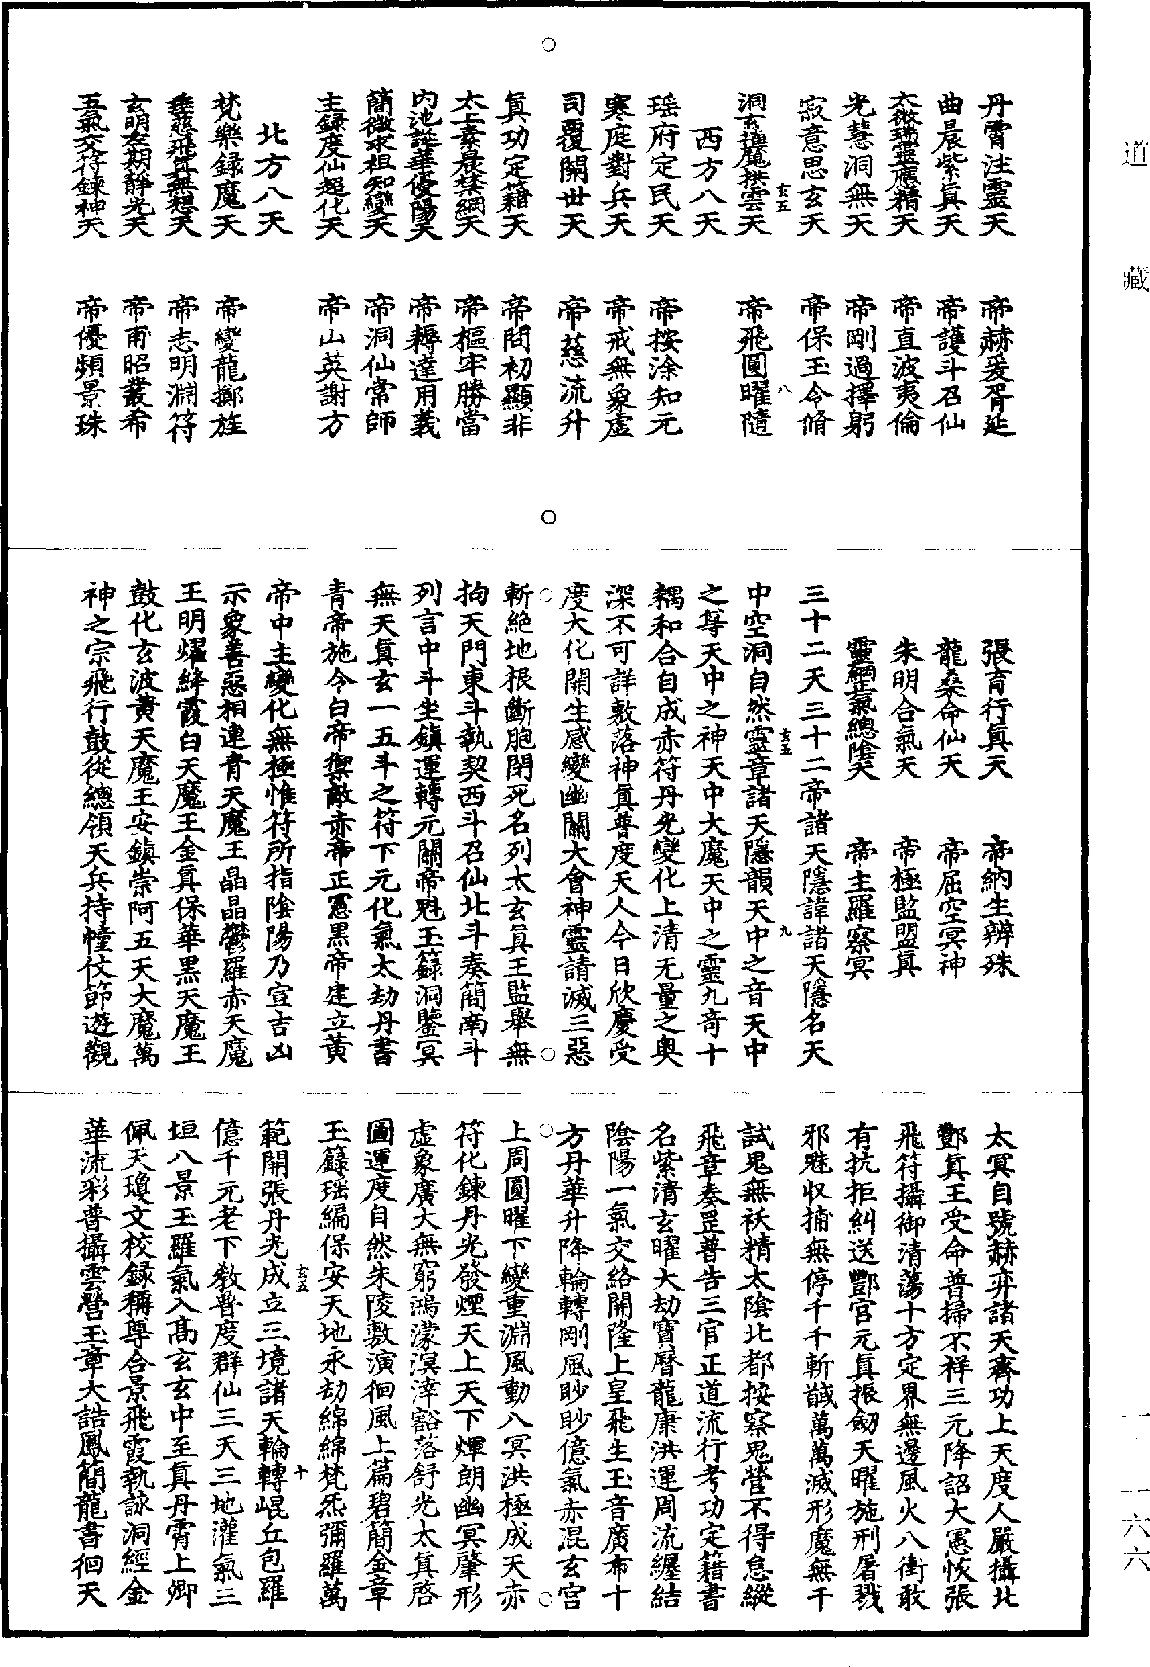 道藏
丹霄注靈天　帝赫爰胥延
曲晨紫真天　帝護斗召仙
太微瑞靈應精天　帝直波夷倫
光慧洞無天　帝剛過擇躬
寂意思玄天　帝保玉令脩
洞玄攝魔拱雲天　帝飛圓曜隨
西方八天
瑶府定民天　帝按涂知元
寒庭對兵天　帝戒無象虛
司覆開世天　帝慈流升
真功定籍天　帝問初顯非
太上素晨禁網天　帝樞牢勝當
內池謹華優陽天　帝耨達用義
簡微求祖知變天　帝洞仙常師
主録度仙超化天　帝山英謝方
北方八天
梵樂録魔天　帝變龍擲旌
垂慈飛真無想天　帝志明淵符
玄明冬期靜光天　帝甫昭叢希
五氣交符鍊神天　帝優頻景珠
張育行真天　帝納生辨殊
龍桑命仙天　帝屈空冥神
朱明合氣天　帝極監盟真
靈網炁總陰天　帝主羅察冥
三十二天三十二帝諸天隱諱諸天隱名天
中空洞自然靈章諸天隱韻天中之音天中
之尊天中之神天中大魔天中之靈九奇十
耦和合自成赤符丹光變化上清无量之奧
深不可詳敷落神真普度天人今日欣慶受
度大化開生感變幽關大會神靈請滅三惡
斬絶地根斷胞閉死名列太玄真王監舉無
拘天門東斗執契西斗召仙北斗奏簡南斗
列言中斗坐鎮運轉元關帝魁玉籙洞鑒冥
無天真玄一五斗之符下元化氣太劫丹書
青帝施令白帝禦敵赤帝正憲黑帝建立黄
帝中主變化無極惟符所指陰陽乃宣吉凶
示象善惡相連青天魔王晶晶鬱羅赤天魔
王明耀絳霞白天魔王金真保華黑天魔王
鼓化玄波黄天魔王安鎮崇阿五天大魔萬
神之宗飛行鼓從總領天兵持幢仗節遊觀
太冥自號赫弈諸天齊功上天度人嚴攝北
酆真王受命普掃不祥三元降詔大憲恢張
飛符攝御清蕩十方定界無邊風火八衝敢
有抗拒糾送酆宫元真振劒天曜施刑屠戮
邪魅收捕無停千千斬馘萬萬滅形魔無干
試鬼無袄精太陰北都按察鬼營不得怠縱
飛章奏罡普告三官正道流行考功定籍書
名紫清玄曜大劫寶曆龍康洪運周流纏結
陰陽一氣交絡開隆上皇飛生玉音廣布十
方丹華升降輪轉剛風眇眇億氣赤混玄宫
上周圓曜下變重淵風動八冥洪極成天赤
符化鍊丹光發煙天上天下煇朗幽冥肇形
虛象廣大無窮鴻濛溟涬豁落舒光太真啓
圖運度自然朱陵敷演徊風上篇碧簡金章
玉籙瑶編保安天地永劫綿綿梵炁彌羅萬
範開張丹光成立三境諸天輪轉崐丘包羅
億千元老下教普度群仙三天三地灌氣三
垣八景玉羅氣入高玄玄中至真丹霄上卿
佩天瓊文校録稱尊合景飛霞執詠洞經金
華流彩普攝雲營玉章大誥鳳簡龍書徊天
玄五
八
玄五
九
玄五
十
一—一六六